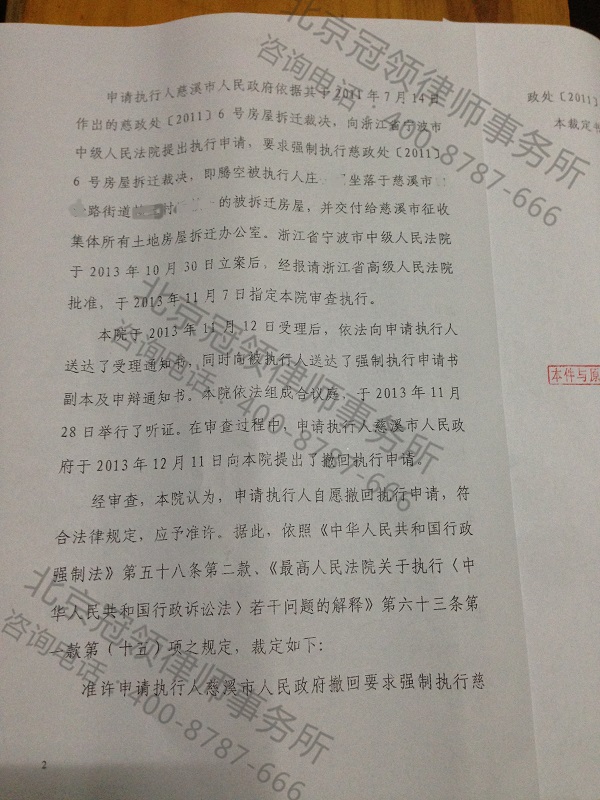 申请执行人慈溪市人民政府依据其于2011年7月14日
作出的慈政处〔2011〕6 号房屋拆迁裁决，向浙江省宁波市
中级人民法院提出执行申请，要求强制执行慈政处〔2011〕
6 号房屋拆迁裁决，即腾空被执行人庄 坐落于慈溪市
路街道 村 的被拆迁房屋，并交付给慈溪市征收
集体所有土地房屋拆迁办公室。浙江省宁波市中级人民法院
于 2013 年 10 月 30 日立案后，经报请浙江省高级人民法院
批准，于 2013 年 11 月 7 日指定本院审查执行。
本院于 2013 年 11 月 12 日受理后，依法向申请执行人
送达了受理通知书，同时向被执行人送达了强制执行申请书
副本及申辩通知书。本院依法组成合议庭，于 2013 年 11 月
28 日举行了听证。在审查过程中，申请执行人慈溪市人民政
府于 2013 年 12 月 11 日向本院提出了撤回执行申请。
经审查，本院认为，申请执行人自愿撤回执行申请，符
合法律规定，应予准许。据此，依照《中华人民共和国行政
强制法》第五十八条第二款、《最高人民法院关于执行〈中
华人民共和国行政诉讼法〉若干问题的解释》第六十三条第
一款第（十五）项之规定，裁定如下：
准许申请执行人慈溪市人民政府撤回要求强制执行慈
2
政处〔2011〕
本裁定书
本件与原
北京冠领律师事务所
咨询电话：400-8787-666
北京冠领律师事务所
咨询电话：400-8787-666
北京冠领律师事务所
咨询电话：400-8787-666